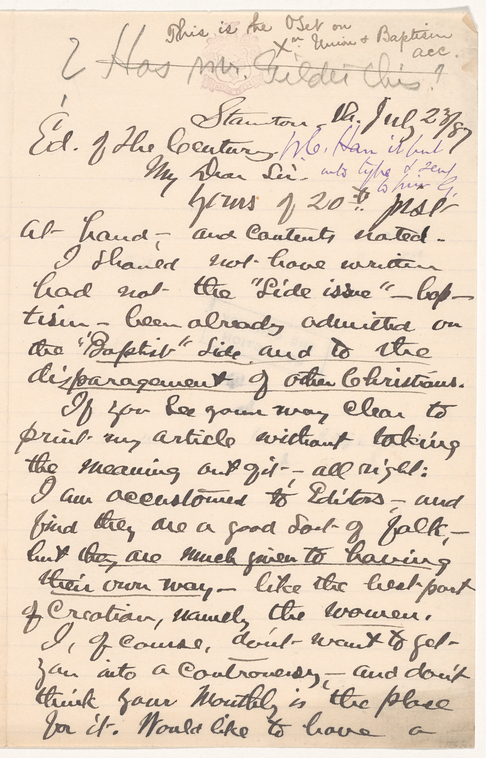 This is the OSet on
Xn Union & Baptism
acc.
? Has Mr. Gilder this?
Staunton, Va. July 23/87
Ed. of The Century.
W.C. Have it put
into type & send
to him G.
My Dear Sir.
Yours of 20th just
at hand, and contents noted.
I should not have written
had not the "Side issue" - bap-
tism - been already admitted on
the "Baptist" side and to the
disparagement of other Christians.
If you see your way clear to
print my article without taking
the meaning out of it - all right:
I am accustomed to Editors, and
find they are a good sort of folk, -
but they are much given to having
their own way - like the best part
of Creation, namely the women.
I, of course, don't want to get
you into a controversy, - and don't
think your Monthly is the place
for it. Would like to have a